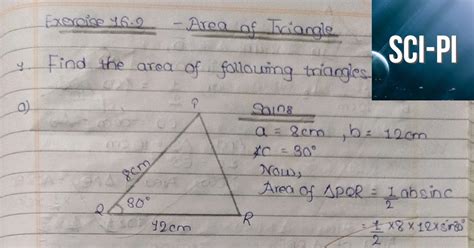 Exercise 16.2 - Area of Triangle
SCI-PI
1. Find the area of following triangles.
a)
P
8cm
Q 30°
12cm
R
Solns
a = 8cm, b = 12cm
∠C = 30°
Now,
Area of ΔPQR = 1/2 absinc
= 1/2 × 8 × 12 × sin30°